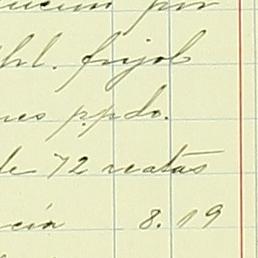 por
hl. frijol
nes p.pdo.
de 72 reatas
cia 8.19